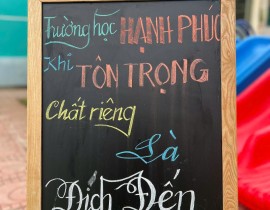 Trường học HẠNH PHÚC
Khi TÔN TRỌNG
Chất riêng
Là
Đích Đến